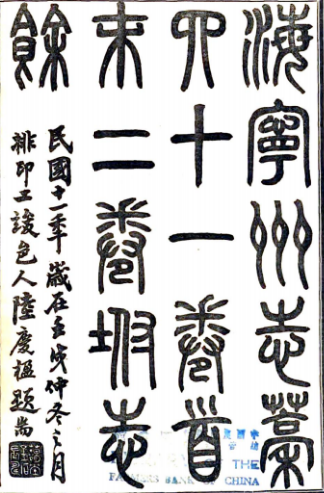 海寧州志藁
四十一卷首
末二卷坿志
餘
民國十一年歲在壬戌仲冬之月
排印工竣邑人陸慶楹題耑
THE
FARMERS BANK OF CHINA